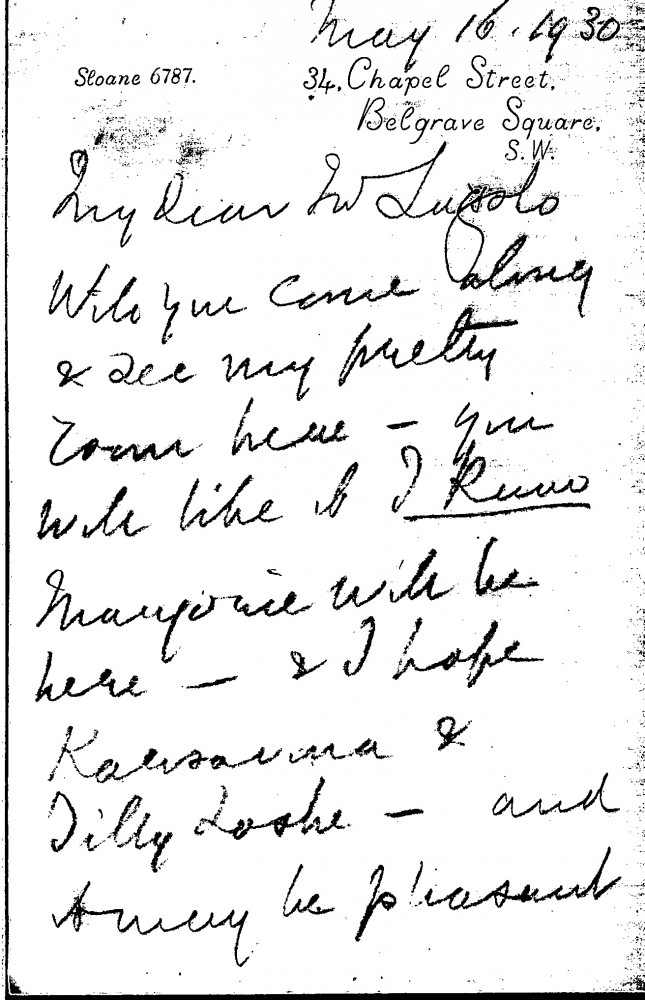 May 16. 1930
Sloane 6787.
34, Chapel Street,
Belgrave Square,
S.W.
My dear Mr
Will you come along
& see my pretty
room here – you
will like it I know
Marjorie will be
here – & I hope
Karsavina &
Tilly Loshe – and
it may be pleasant